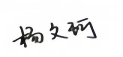 杨文珂